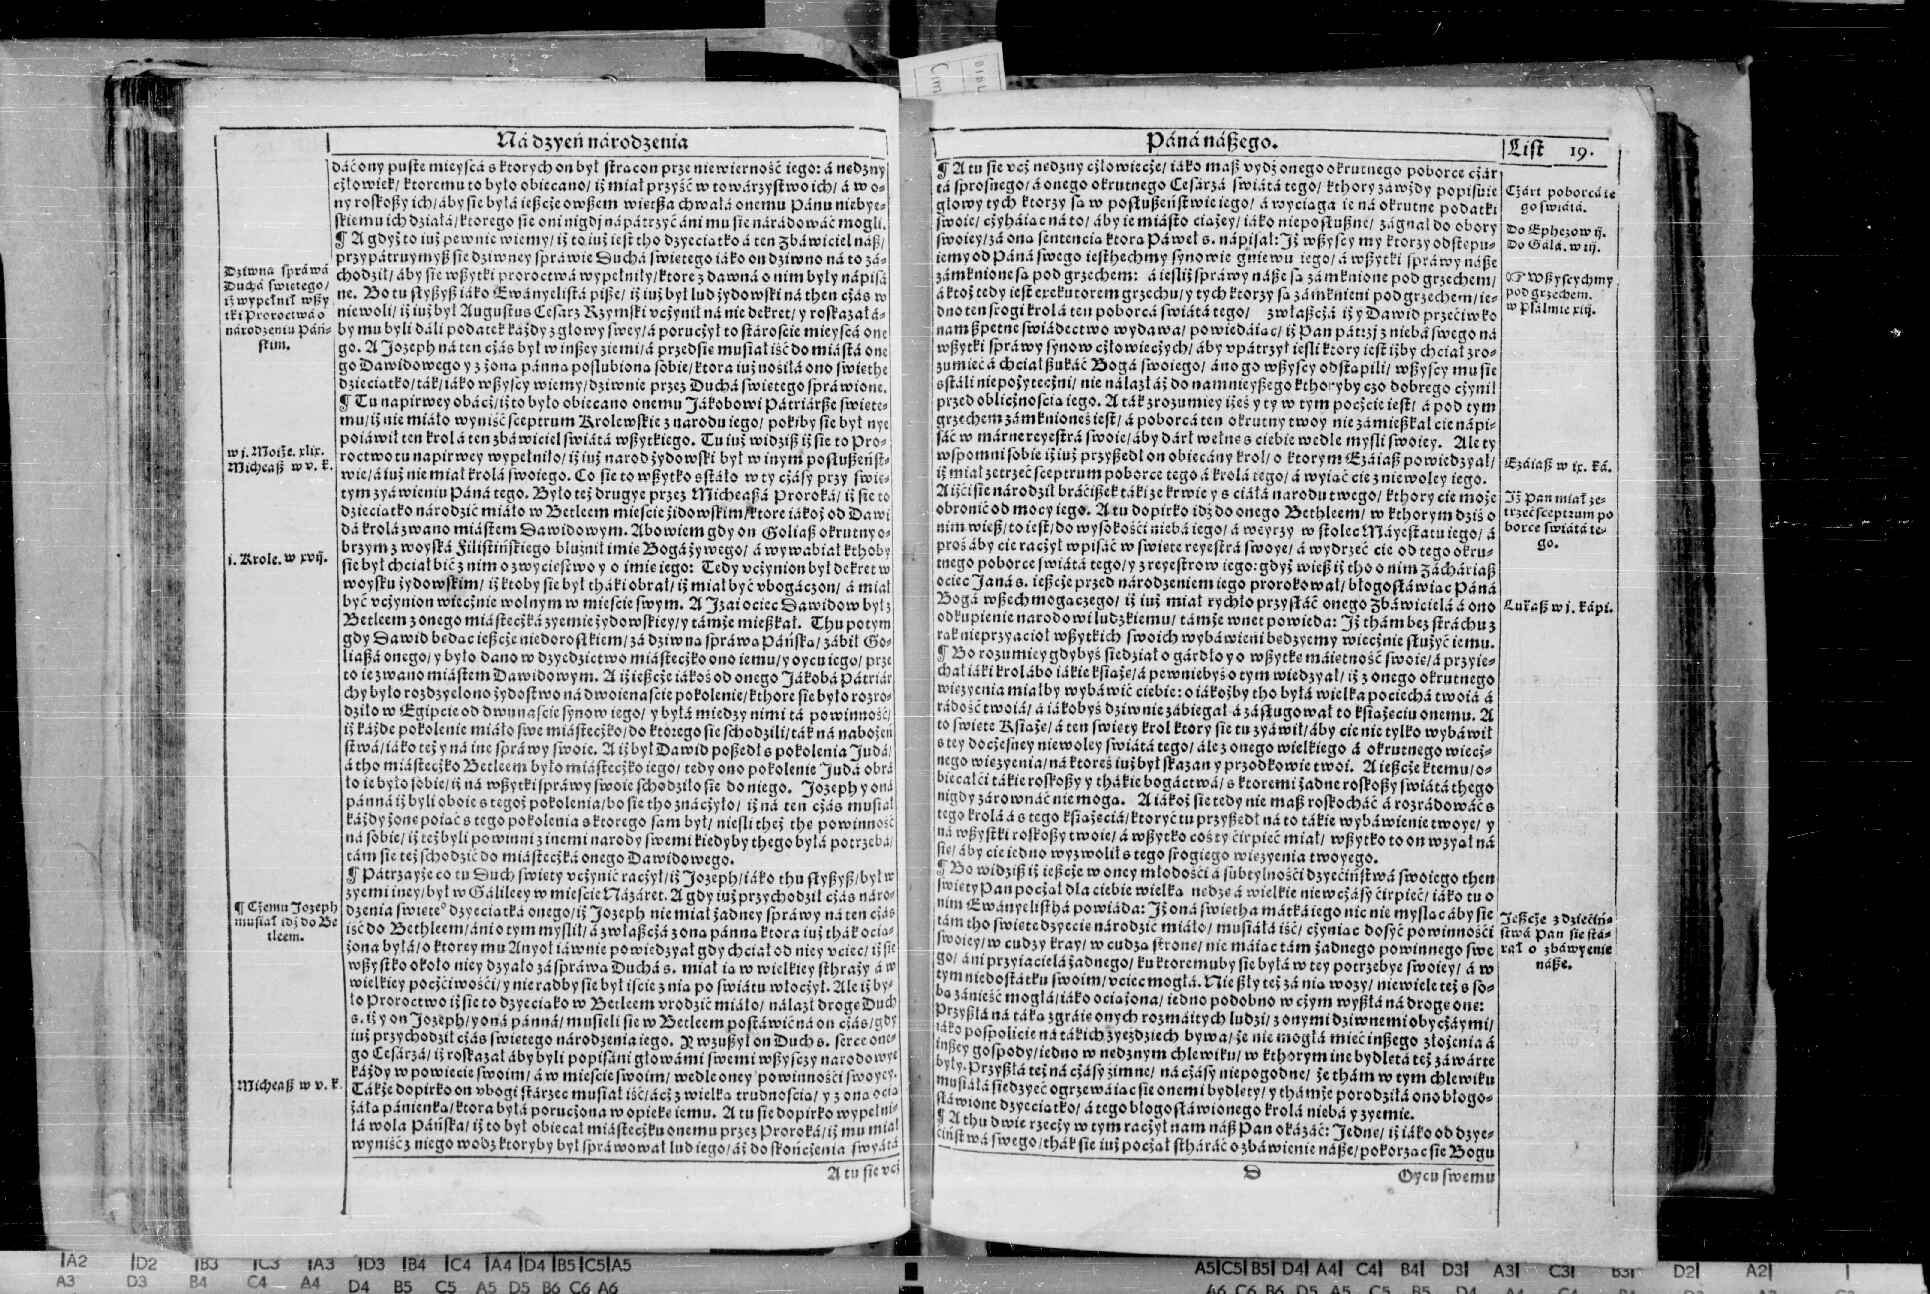 Ná dzyeń národzenia
dáć ony puste mieyscá s ktorych on był strącon prze niewierność iego: á nędzny
cżłowiek/ ktoremu to było obiecano/ iż miał przyść w towárzystwo ich/ á w o-
ny roskoszy ich/ áby sie byłá ieszcże owszem więtsza chwałá onemu Pánu niebye-
skiemu ich działá/ ktorego sie oni nigdj nápátrzyć áni mu sie nárádowáć mogli.
¶ A gdyż to iuż pewnie wiemy/ iż to iuż iest tho dzyeciątko á ten Zbáwiciel nász/
przypátruymysz sie dziwney spráwie Duchá swiętego iáko on dziwno ná to zá-
chodził/ áby sie wszytki proroctwá wypełniły/ ktore z dawná o nim były nápisá
ne. Bo tu słyszysz iáko Ewányelistá pisze/ iż iuż był lud żydowski ná then cżás w
niewoli/ iż iuż był Augustus Cesarz Rzymski vcżynił ná nie dekret/ y roskazał á-
by mu byli dáli podátek káżdy z głowy swey/ á porucżył to stároscie mieyscá one
go. A Jozeph ná ten cżás był w inszey ziemi/ á przedsię musiał iść do miástá one
go Dawidowego y z żoną pánną poslubioną sobie/ ktora iuż nosiłá ono swięthe
dzieciątko/ ták/ iáko wszyscy wiemy/ dziwnie przez Duchá swiętego spráwione.
¶ Tu napirwey obácż/ iż to było obiecano onemu Jákobowi Pátriársze swięte-
mu/ iż nie miáło wyniść sceptrum Krolewskie z narodu iego/ pokiby sie był nye
poiáwił ten krol á ten zbáwiciel swiátá wszytkiego. Tu iuż widzisz iż sie to Pro-
roctwo tu napirwey wypełniło/ iż iuż narod żydowski był w inym posłuszeńst-
wie/ á iuż nie miał krolá swoiego. Co sie to wszytko sstáło w ty cżásy przy swię-
tym zyáwieniu Páná tego. Było też drugye przez Micheaszá Proroká/ iż sie to
dzieciątko národzić miáło w Betleem miescie żidowskim/ ktore iákoż od Dawi
dá krolá zwano miástem Dawidowym. Abowiem gdy on Goliasz okrutny o-
brzym z woyská Filistińskiego bluźnił imię Bogá żywego/ á wywabiał kthoby
sie był chciał bić z nim o zwycięstwo y o imię iego: Tedy vcżynion był dekret w
woysku żydowskim/ iż ktoby sie był tháki obrał/ iż miał być vbogácon/ á miał
być vcżynion wiecżnie wolnym w miescie swym. A Izái ociec Dawidow był z
Betleem z onego miástecżká zyemie żydowskiey/ y támże mieszkał. Thu potym
gdy Dawid będąc ieszcże niedorostkiem/ zá dziwną spráwą Páńską/ zábił Go-
liaszá onego/ y było dano w dzyedzictwo miástecżko ono iemu/ y oycu iego/ prze
to ie zwano miástem Dawidowym. A iż ieszcże iákoś od onego Jákobá Pátriár
chy było rozdzyelono żydostwo ná dwoienascie pokolenie/ kthore sie było rozro-
dziło w Egipcie od dwunascie synow iego/ y byłá miedzy nimi tá powinność/
iż káżde pokolenie miáło swe miástecżko/ do ktorego sie schodzili/ ták ná nabożeń
stwá/ iáko też y ná ine spráwy swoie. A iż był Dawid poszedł s pokolenia Judá/
á tho miástecżko Betleem było miástecżko iego/ tedy ono pokolenie Judá obrá
ło ie było sobie/ iż ná wszytki spráwy swoie schodziło sie do niego. Jozeph y oná
pánná iż byli oboie s tegoż pokolenia/ bo sie tho znácżyło/ iż ná ten cżás musiał
káżdy żonę poiąć s tego pokolenia s ktorego sam był/ iesli też the powinność
ná sobie/ iż też byli powinni z inemi narody swemi kiedyby thego byłá potrzebá/
tám sie też schodzić do miástecżká onego Dawidowego.
¶ Pátrzayże co tu Duch swięty vcżynić racżył/ iż Jozeph/ iáko thu słyszysz/ był w
zyemi iney/ był w Gálileey w miescie Názáret. A gdy iuż przychodził cżás náro-
dzenia swięte° dzyeciątká onego/ iż Jozeph nie miał żadney spráwy ná ten cżás
iść do Bethleem/ áni o tym myslił/ á zwłaszcżá z oną pánną ktora iuż thák ociá-
żona byłá/ o ktorey mu Anyoł iáwnie powiedzyał gdy chciał od niey vciec/ iż sie
wszystko około niey dzyało zá spráwą Duchá s. miał ią w wielkiey sthraży á w
wielkiey pocżciwości/ y nie radby sie był iscie z nią po swiátu włocżył. Ale iż by-
ło Proroctwo iż sie to dzyeciąko w Betleem vrodzić miáło/ nálazł drogę Duch
s. iż y on Jozeph/ y oná pánná/ musieli sie w Betleem postáwić ná on cżás/ gdy
iuż przychodził cżás swiętego národzenia iego. Y wzuszył on Duch s. serce one-
go Cesárzá/ iż roskazał áby byli popisáni głowámi swemi wszyscy narodowye
káżdy w powiecie swoim/ á w miescie swoim/ wedle oney powinności swoyey.
Tákże dopirko on vbogi stárzec musiał iść/ ácż z wielką trudnoscią/ y z oną ocią
żáłą pánienką/ ktora byłá porucżona w opiekę iemu. A tu sie dopirko wypełni-
łá wola Páńska/ iż to był obiecał miástecżku onemu przez Proroká/ iż mu miał
wyniść z niego wodz ktoryby był spráwował lud iego/ áż do skońcżenia swyátá
A tu sie vcż
Dziwna spráwá
Duchá swiętego/
iż wypełnił wszy
tki Proroctwá o
národzeniu Páń-
skim.
w j. Moiże. xlix.
Micheasz w v. k.
i. Krole. w xvij.
¶ Cżemu Jozeph
musiał idż do Be
tleem.
Micheasz w v. k.
Páná nászego.
List 19.
¶ A tu sie vcż nędzny cżłowiecże/ iáko masz vydż onego okrutnego poborcę cżár
tá sprosnego/ á onego okrutnego Cesárzá swiátá tego/ kthory záwżdy popisuie
głowy tych ktorzy są w posłuszeństwie iego/ á wyciąga ie ná okrutne podatki
swoie/ cżyháiąc ná to/ áby ie miásto ciążey/ iáko nieposłuszne/ zágnał do obory
swoiey/ zá oną sentencią ktorą Páweł s. nápisał: Iż wszyscy my ktorzy odstępu-
iemy od Páná swego iesthechmy synowie gniewu iego/ á wszytki spráwy násze
zámknione są pod grzechem: á iesliż spráwy násze są zámknione pod grzechem/
á ktoż tedy iest exekutorem grzechu/ y tych ktorzy są zámknieni pod grzechem/ ie-
dno ten srogi krol á ten poborcá swiátá tego/ zwłaszcżá iż y Dawid przeciwko
nam szpetne swiádectwo wydawa/ powiedáiąc/ iż Pan pátrzj z niebá swego ná
wszytki spráwy synow cżłowiecżych/ áby vpátrzył iesli ktory iest iżby chciał zro-
zumieć á chciał szukáć Bogá swoiego/ áno go wszyscy odstąpili/ wszyscy mu sie
sstáli niepożytecżni/ nie nálazł áż do namnieyszego kthoryby czo dobrego cżynił
przed oblicżnoscią iego. A ták zrozumiey iżeś y ty w tym pocżcie iest/ á pod tym
grzechem zámknioneś iest/ á poborcá ten okrutny twoy nie zámieszkał cię nápi-
sáć w márne reyestrá swoie/ áby dárł wełnę s ciebie wedle mysli swoiey. Ale ty
wspomni sobie iż iuż przyszedł on obiecány krol/ o ktorym Ezáiasz powiedzyał/
iż miał zetrzeć sceptrum poborce tego á krolá tego/ á wyiąć cię z niewoley iego.
A iżci sie národził bráciszek táki ze krwie y s ciáłá narodu twego/ kthory cię może
obronić od mocy iego. A tu dopirko idż do onego Bethleem/ w kthorym dziś o
nim wiesz/ to iest/ do wysokości niebá iego/ á weyrzy w stolec Máyestatu iego/ á
proś áby cię racżył wpisáć w swięte reyestrá swoye/ á wydrzeć cię od tego okru-
tnego poborce swiátá tego/ y z reyestrow iego: gdyż wiesz iż tho o nim Záchariasz
ociec Janá s. ieszcże przed národzeniem iego prorokował/ błogosłáwiąc Páná
Bogá wszechmogącego/ iż iuż miał rychło przysłáć onego Zbáwicielá á ono
odkupienie narodowi ludzkiemu/ támże wnet powieda: Iż thám bez stráchu z
rąk nieprzyacioł wszytkich swoich wybáwieni będzyemy wiecżnie służyć iemu.
¶ Bo rozumiey gdybyś siedział o gárdło y o wszytkę máiętność swoię/ á przyie-
chał iáki krol ábo iákie książę/ á pewniebyś o tym wiedzyał/ iż z onego okrutnego
więzyenia miałby wybáwić ciebie: o iákożby tho byłá wielka pociechá twoiá á
rádość twoiá/ á iákobyś dziwnie zábiegał á zásługował to książęciu onemu. A
to swięte Książę/ á ten swięty krol ktory sie tu zyáwił/ áby cię nie tylko wybáwił
s tey docżesney niewoley swiátá tego/ ále z onego wielkiego á okrutnego wiecż-
nego więzyenia/ ná ktoreś iuż był skazan y przodkowie twoi. A ieszcże ktemu/ o-
biecałći tákie roskoszy y thákie bogáctwá/ s ktoremi żadne roskoszy swiátá thego
nigdy zárownáć nie mogą. A iákoż sie tedy nie masz roskocháć á rozrádowáć s
tego krolá á s tego książęciá/ ktoryć tu przyszedł ná to tákie wybáwienie twoye/ y
ná wszystki roskoszy twoie/ á wszytko coś ty ćirpieć miał/ wszytko to on wzyął ná
się/ áby cię iedno wyzwolił s tego srogiego więzyenia twoyego.
¶ Bo widzisz iż ieszcże w oney młodości á subtylności dzyeciństwá swoiego then
swięty Pan pocżął dla ciebie wielką nędzę á wielkie niewcżásy ćirpieć/ iáko tu o
nim Ewányelisthá powiáda: Iż oná swiętha mátká iego nic nie mysląc áby sie
tám tho swięte dzyecię národzić miáło/ musiáłá iść/ cżyniąc dosyć powinności
swoiey/ w cudzy kray/ w cudzą stronę/ nie máiąc tám żadnego powinnego swe
go/ áni przyiacielá żadnego/ ku ktoremuby sie byłá w tey potrzebye swoiey/ á w
tym niedostátku swoim/ vciec mogłá. Nie szły też zá nią wozy/ niewiele też s so-
bą zánieść mogłá/ iáko ociążona/ iedno podobno w cżym wyszłá ná drogę onę:
Przyszłá ná táką zgráię onych rozmáitych ludzi/ z onymi dziwnemi obycżáymi/
iáko pospolicie ná tákich zyeżdziech bywa/ że nie mogłá mieć inszego złożenia á
inszey gospody/ iedno w nędznym chlewiku/ w kthorym ine bydlętá też záwárte
były. Przyszłá też ná cżásy zimne/ ná cżásy niepogodne/ że thám w tym chlewiku
musiáłá siedzyeć ogrzewáiąc sie onemi bydlęty/ y thámże porodziłá ono błogo-
słáwione dzyeciątko/ á tego błogosłáwionego krolá niebá y zyemie.
¶ A thu dwie rzecży w tym racżył nam nász Pan okázáć: Jednę/ iż iáko od dzye-
ćiństwá swego/ thák sie iuż pocżął stháráć o zbáwienie násze/ pokorząc sie Bogu
D Oycu swemu
Cżárt poborcá te
go swiátá.
Do Ephezow ij.
Do Gálá. w iij.
☞ Wszyscychmy
pod grzechem.
w Psálmie xiij.
Ezáiasz w ix. ká.
Iż Pan miał ze-
trzeć sceptrum po
borce swiátá te-
go.
Lukasz w j. kápi.
Jeszcże z dziećiń-
stwá Pan sie stá-
rał o zbáwyenie
násze.
A2 D2 B3 C3 A3 D3 B4 C4 A4 D4 B5 C5 A5
A3 D3 B4 C4 A4 D4 B5 C5 A5 D5 B6 C6 A6
A5 C5 B5 D4 A4 C4 B4 D3 A3 C3 B3 D2 A2